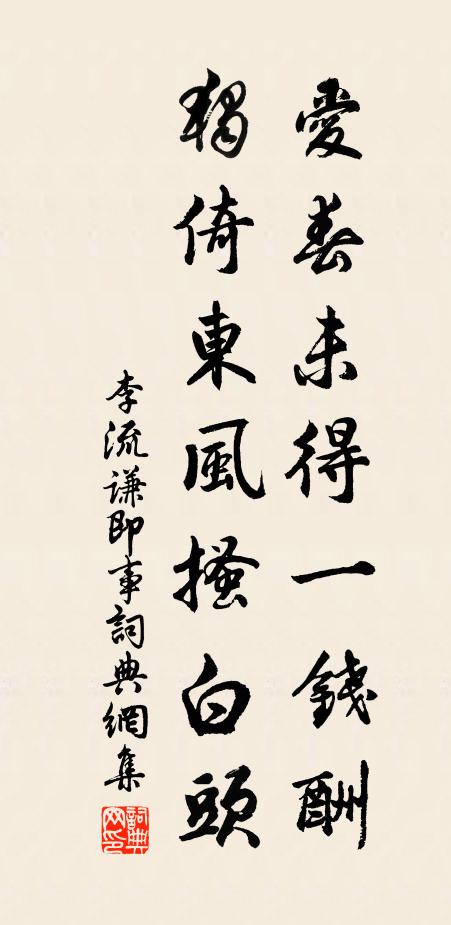 愛春未得一錢酬
獨倚東風搔白頭
李流謙即事詞典網集
詞典網印